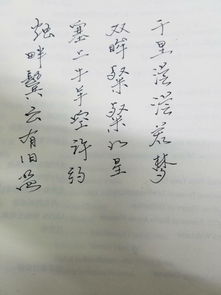 千里茫茫若梦
双眸粲粲如星
塞上牛羊空许约
烛畔鬓云有旧盟